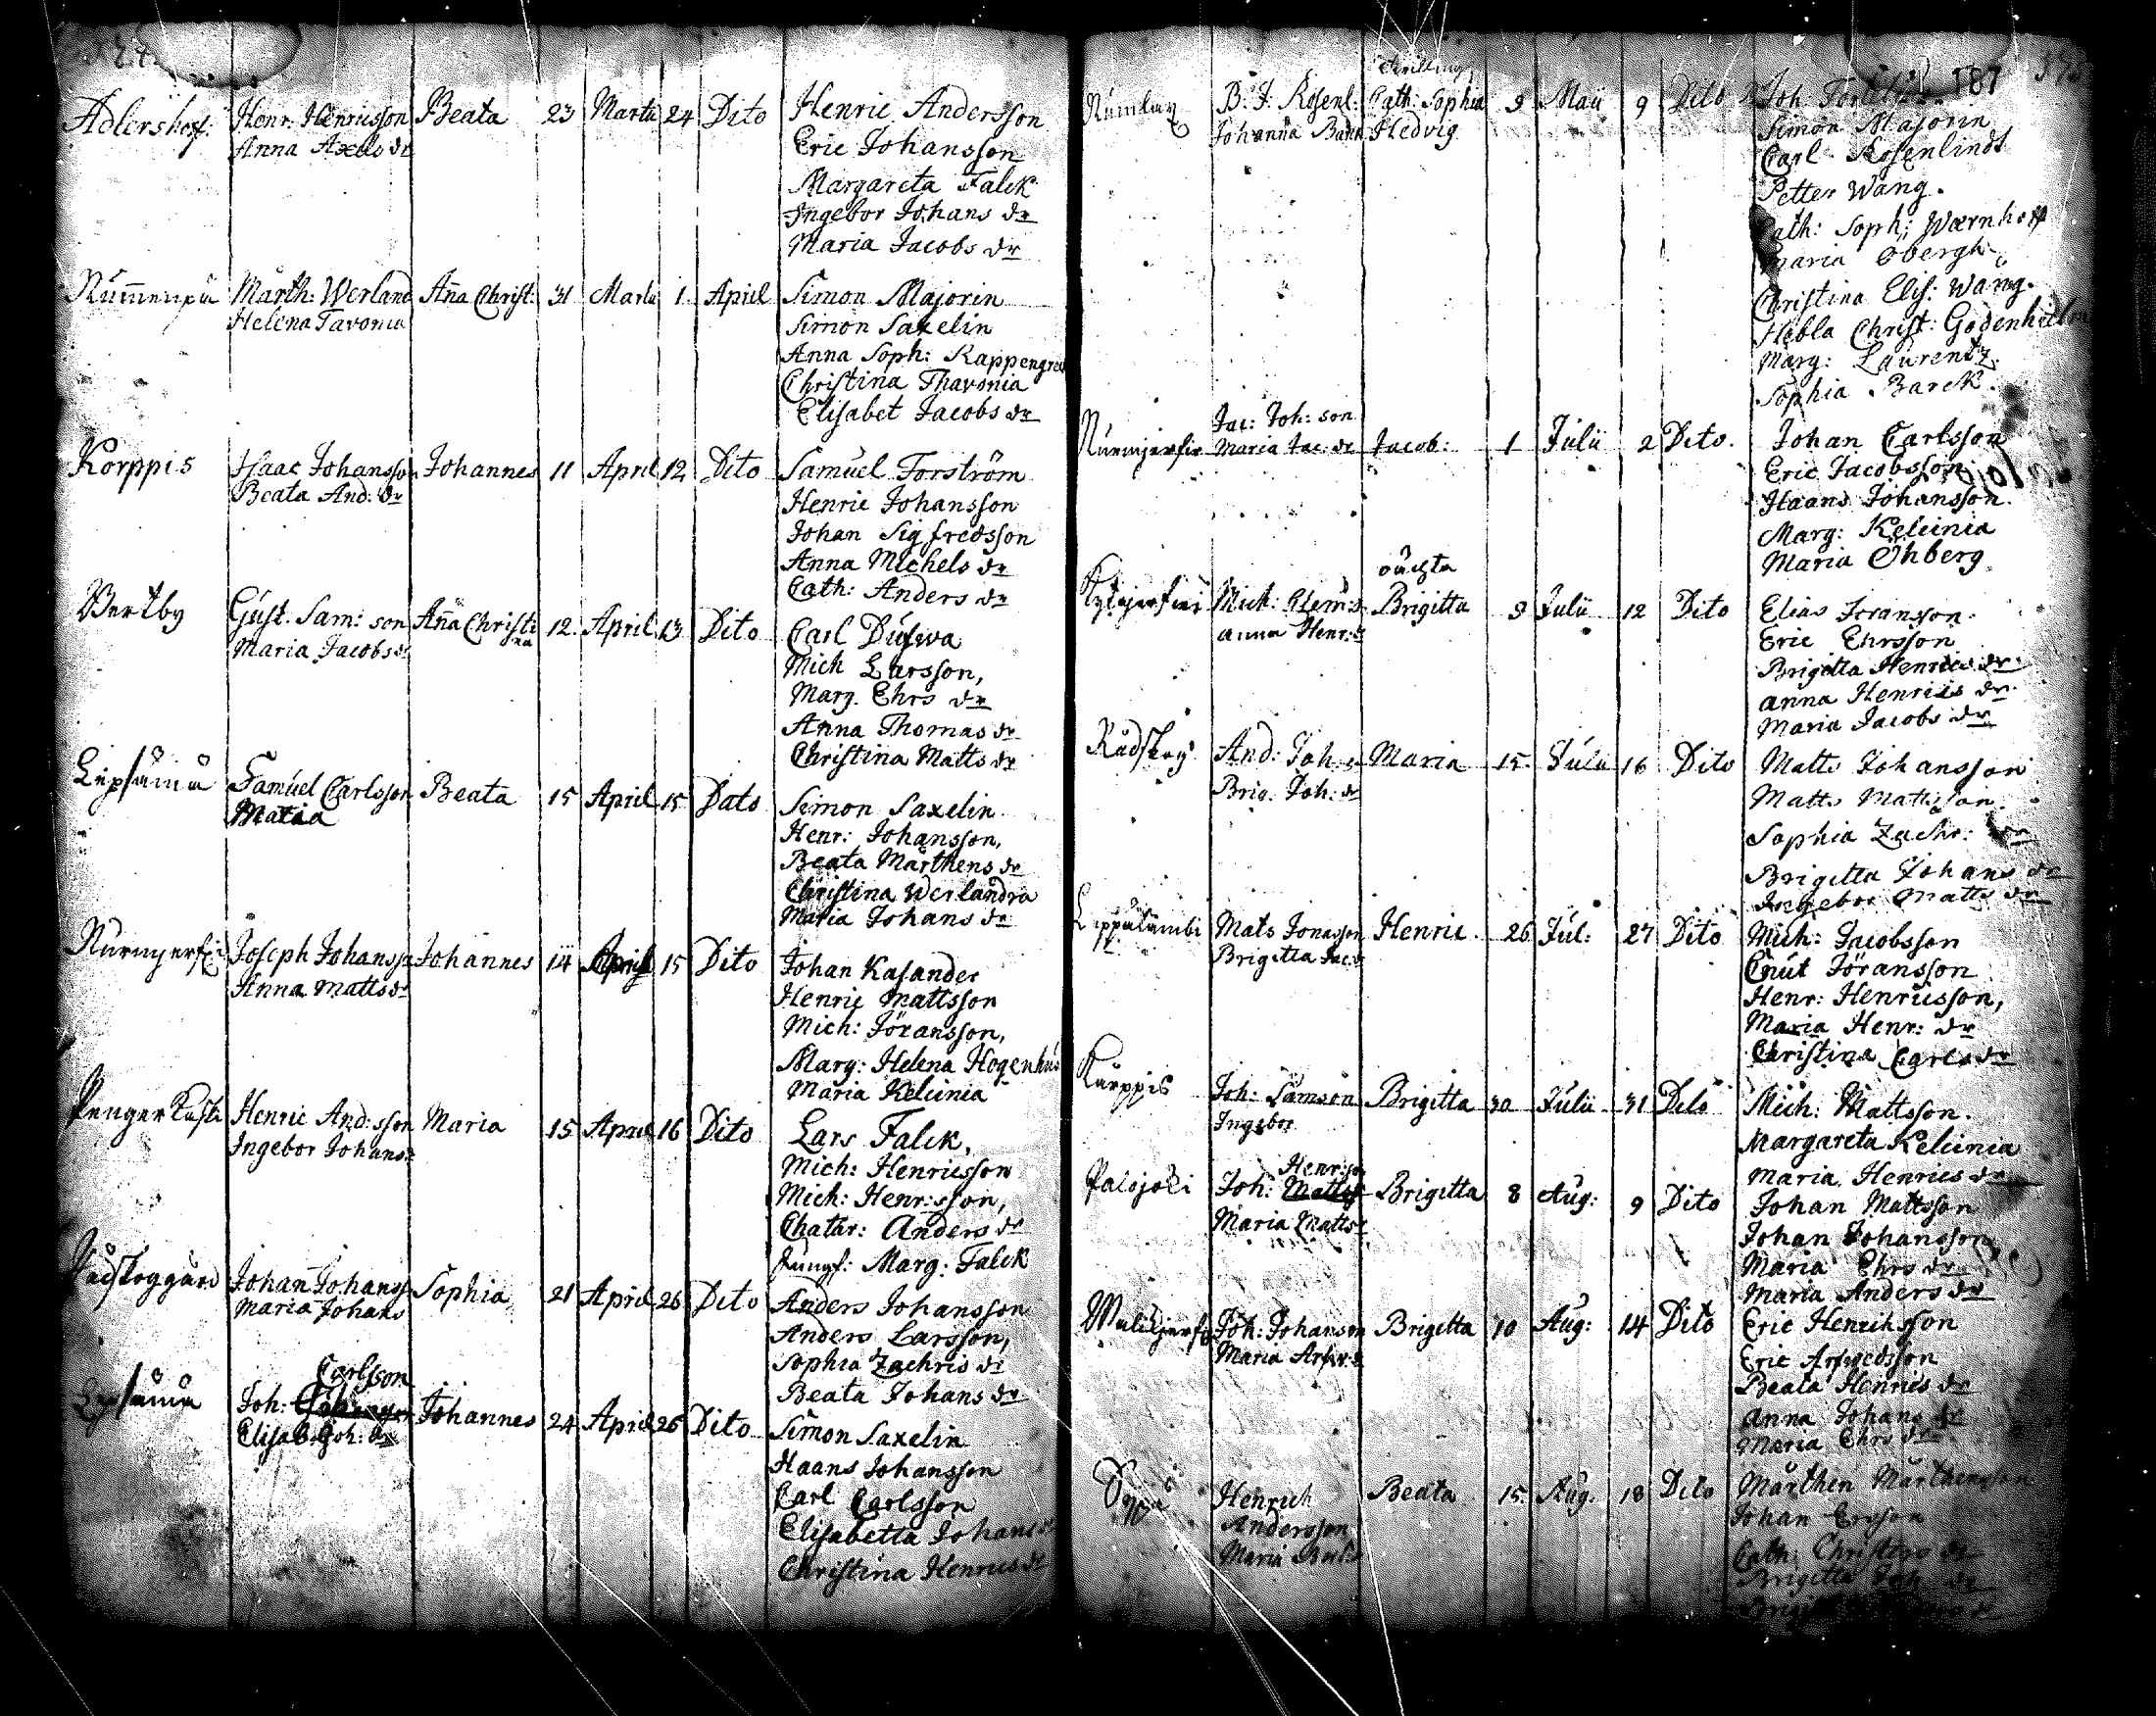 Adlershof: Henr: Henricsson Beata 23 Martii 24 Dito Henric Andersson
Anna Axels dr Eric Johansson
Margareta Falck
Ingebor Johans dr
Maria Jacobs dr
Num̄enpä Mårth: Werland Ana Christ: 31 Martii 1 April Simon Majorin
Helena Tavonia Simon Saxelin
Anna Soph: Kappengren
Christina Thavonia
Elisabet Jacobs dr
Korppis Isaac Johansson Johannes 11 April 12 Dito Samuel Forström
Beata And: dr Henric Johansson
Johan Sigfredsson
Anna Michels dr
Cath: Anders dr
Vertby Gust. Sam: son Ana Christi 12. April 13 Dito Carl Dufwa
Maria Jacobs dr na Mich Larsson,
Marg. Ehrs dr
Anna Thomas dr
Christina Matts dr
Lepsämä Samuel Carlsson Beata 15 April 15 Dato Simon Saxelin
Maria Henr: Johansson,
Beata Mårthens dr
Christina Werlandra
Maria Johans dr
Nurmjerfvi Joseph Johansson Johannes 14 April 15 Dito Johan Kasander
Anna Matts dr Henric Mattsson
Mich: Jöransson,
Marg: Helena Hogenhus
Maria Keleinia
Penger Kusti Henric And:sson Maria 15 April 16 Dito Lars Falck,
Ingebor Johans dr Mich: Henricsson
Mich: Henr:sson,
Chatar: Anders dr
Jungf: Marg: Falck
Johan Johanss Sophia 21 April 26 Dito Anders Johansson
Maria Johans Anders Larsson,
Sophia Zachris dr
Beata Johans dr
Carlsson
Lepsämä Joh: Johannes 24 April 26 Dito Simon Saxelin
Elisab: Joh: dr Haans Johansson
Carl Carlsson
Elisabetta Johans dr
Christina Henrics dr
187
Trilling
Numlax B. J. Rosenl: Cath: Sophia 9 Maii 9 Dito Joh:
Johanna Bann Hedvig Simon Majorin
Carl Rosenlindt
Petter Wang.
Cath: Soph: Wærnhelp
Maria Öbergh
Christina Elis: Wang.
Hebla Christ: Godenhielm
Marg: Laurentz.
Sophia Barck.
Jac: Joh: son
Nurmjerfvi Maria Jac: dr Jacob: 1 Julii 2 Dito. Johan Carlsson
Eric Jacobsson
Haans Johansson.
Marg: Keleinia
Maria Öhberg
oächta
Kytäjerfvi Mich: Clem: Brigitta 9 Julii 12 Dito Elias Joransson.
Anna Henr: dr Eric Ehrsson
Brigitta Henrics dr
Anna Henrics dr
Maria Jacobs dr
Rådskog And: Joh: Maria 15. Julii 16 Dito Matts Johansson
Brig. Joh: dr Matts Mattsson.
Sophia Zachr: dr
Brigitta Johans dr
Ingebor Matts dr
Leppälambi Mats Jonasson Henric. 26 Jul: 27 Dito Mich: Jacobsson
Brigitta Jac: dr Cnut Jöransson
Henr: Henricsson,
Maria Henr: dr
Christina Carls dr
Karppis Joh: Samson Brigitta 30 Julii 31 Dito Mich: Mattsson.
Ingebor Margareta Keleinia
Maria Henrics dr
Henr:son
Palojoki Joh: Matts Brigitta 8 Aug: 9 Dito Johan Mattsson
Maria Matts dr Johan Johansson
Maria Ehrs dr
Maria Anders dr
Joh: Johanson Brigitta 10 Aug: 14 Dito Eric Henriksson
Maria Arfw: dr Eric Arfwedsson
Beata Henrics dr
Anna Johans dr
Maria Ehrs dr
Henrich Beata 15. Aug. 18 Dito Mårthen Mårthensson
Andersson Johan Ersson
Maria Cath: Christers dr
Brigitta Joh: dr